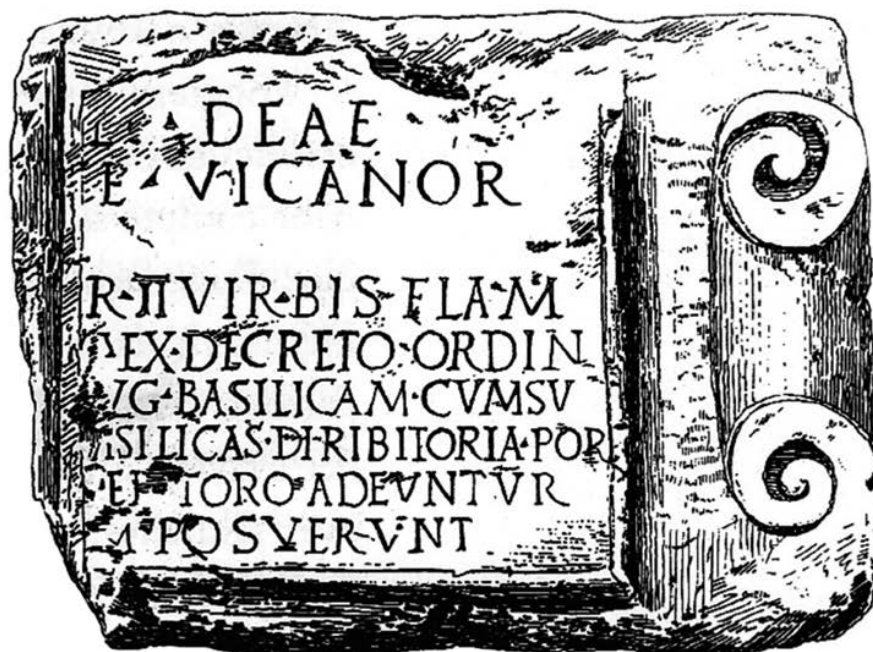 DEAE
VICANOR
R·IIVIR·BIS·FLAM
EX·DECRETO·ORDIN
VG·BASILICAM·CVMSV
SILICAS·DIRIBITORIA·POR
TORO·ADEVNTVR
POSVERVNT